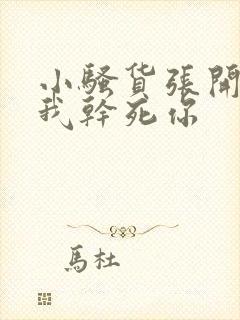 小騷货張開
我幹死你
馬杜